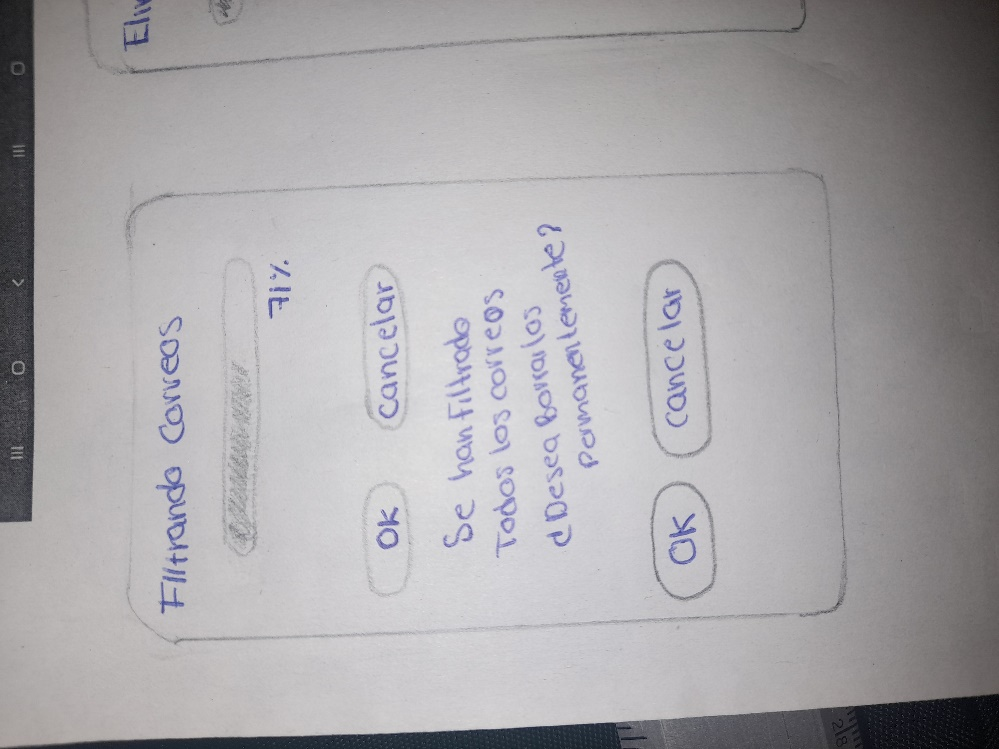 Filtrando Correos
71%
OK cancelar
Se han Filtrado
Todos los correos
¿Desea Borrarlos
permanentemente?
OK cancelar
Elim
28